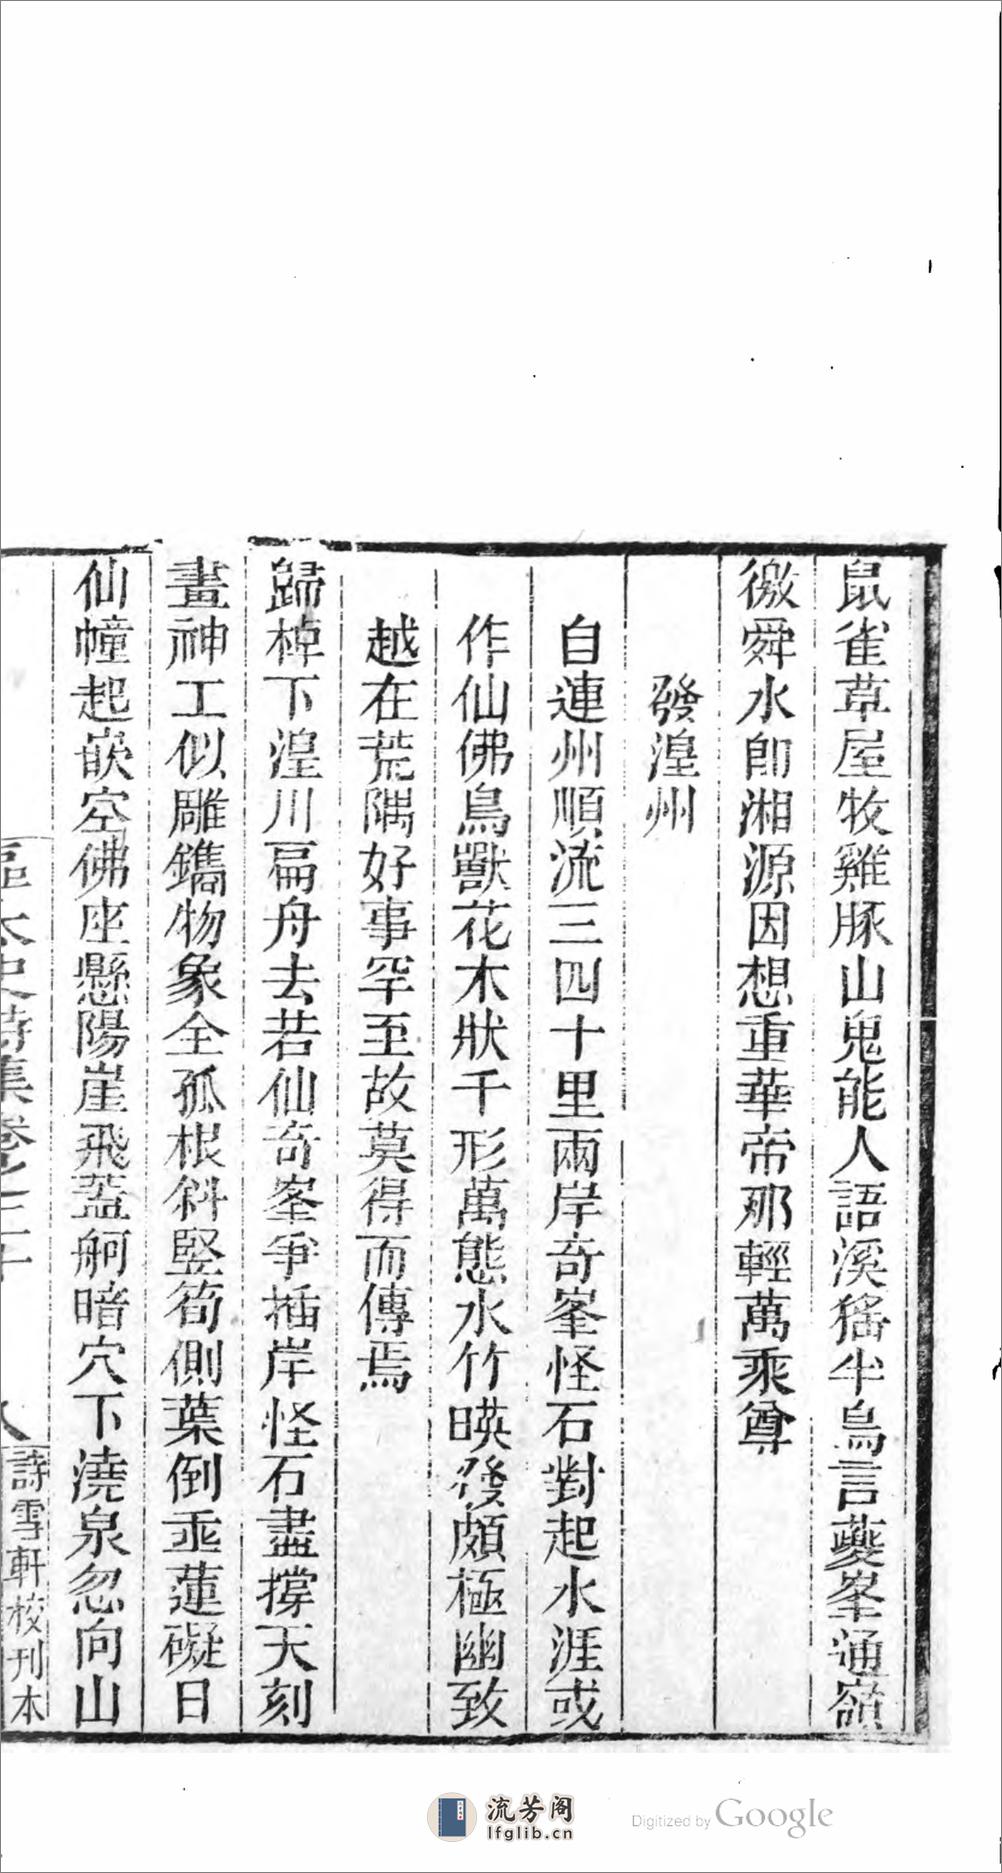 鼠雀草屋牧雞豚山鬼能人語溪猺半鳥言夔峯通嶺
徼舜水卽湘源因想重華帝那輕萬乘尊
發湟州
自連州順流三四十里兩岸奇峯怪石對起水涯或
作仙佛鳥獸花木狀千形萬態水竹暎發頗極幽致
越在荒隅好事罕至故莫得而傳焉
歸棹下湟川扁舟去若仙奇峯爭插岸怪石盡撐天刻
畫神工似雕鐫物象全孤根斜竪筍側葉倒垂蓮礙日
仙幢起嵌空佛座懸陽崖飛蓋舸暗穴下澆泉忽向山
太史詩集卷之二十
八
詩雪軒校刊本
流芳阁
lfglib.cn
Digitized by Google